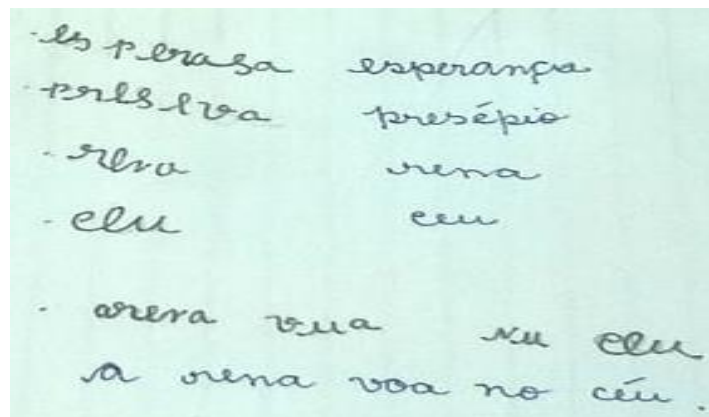 . es perasa esperança
. presepa presépio
. rena rena
. ceu ceu
. arena vua nu ceu
a rena voa no céu.